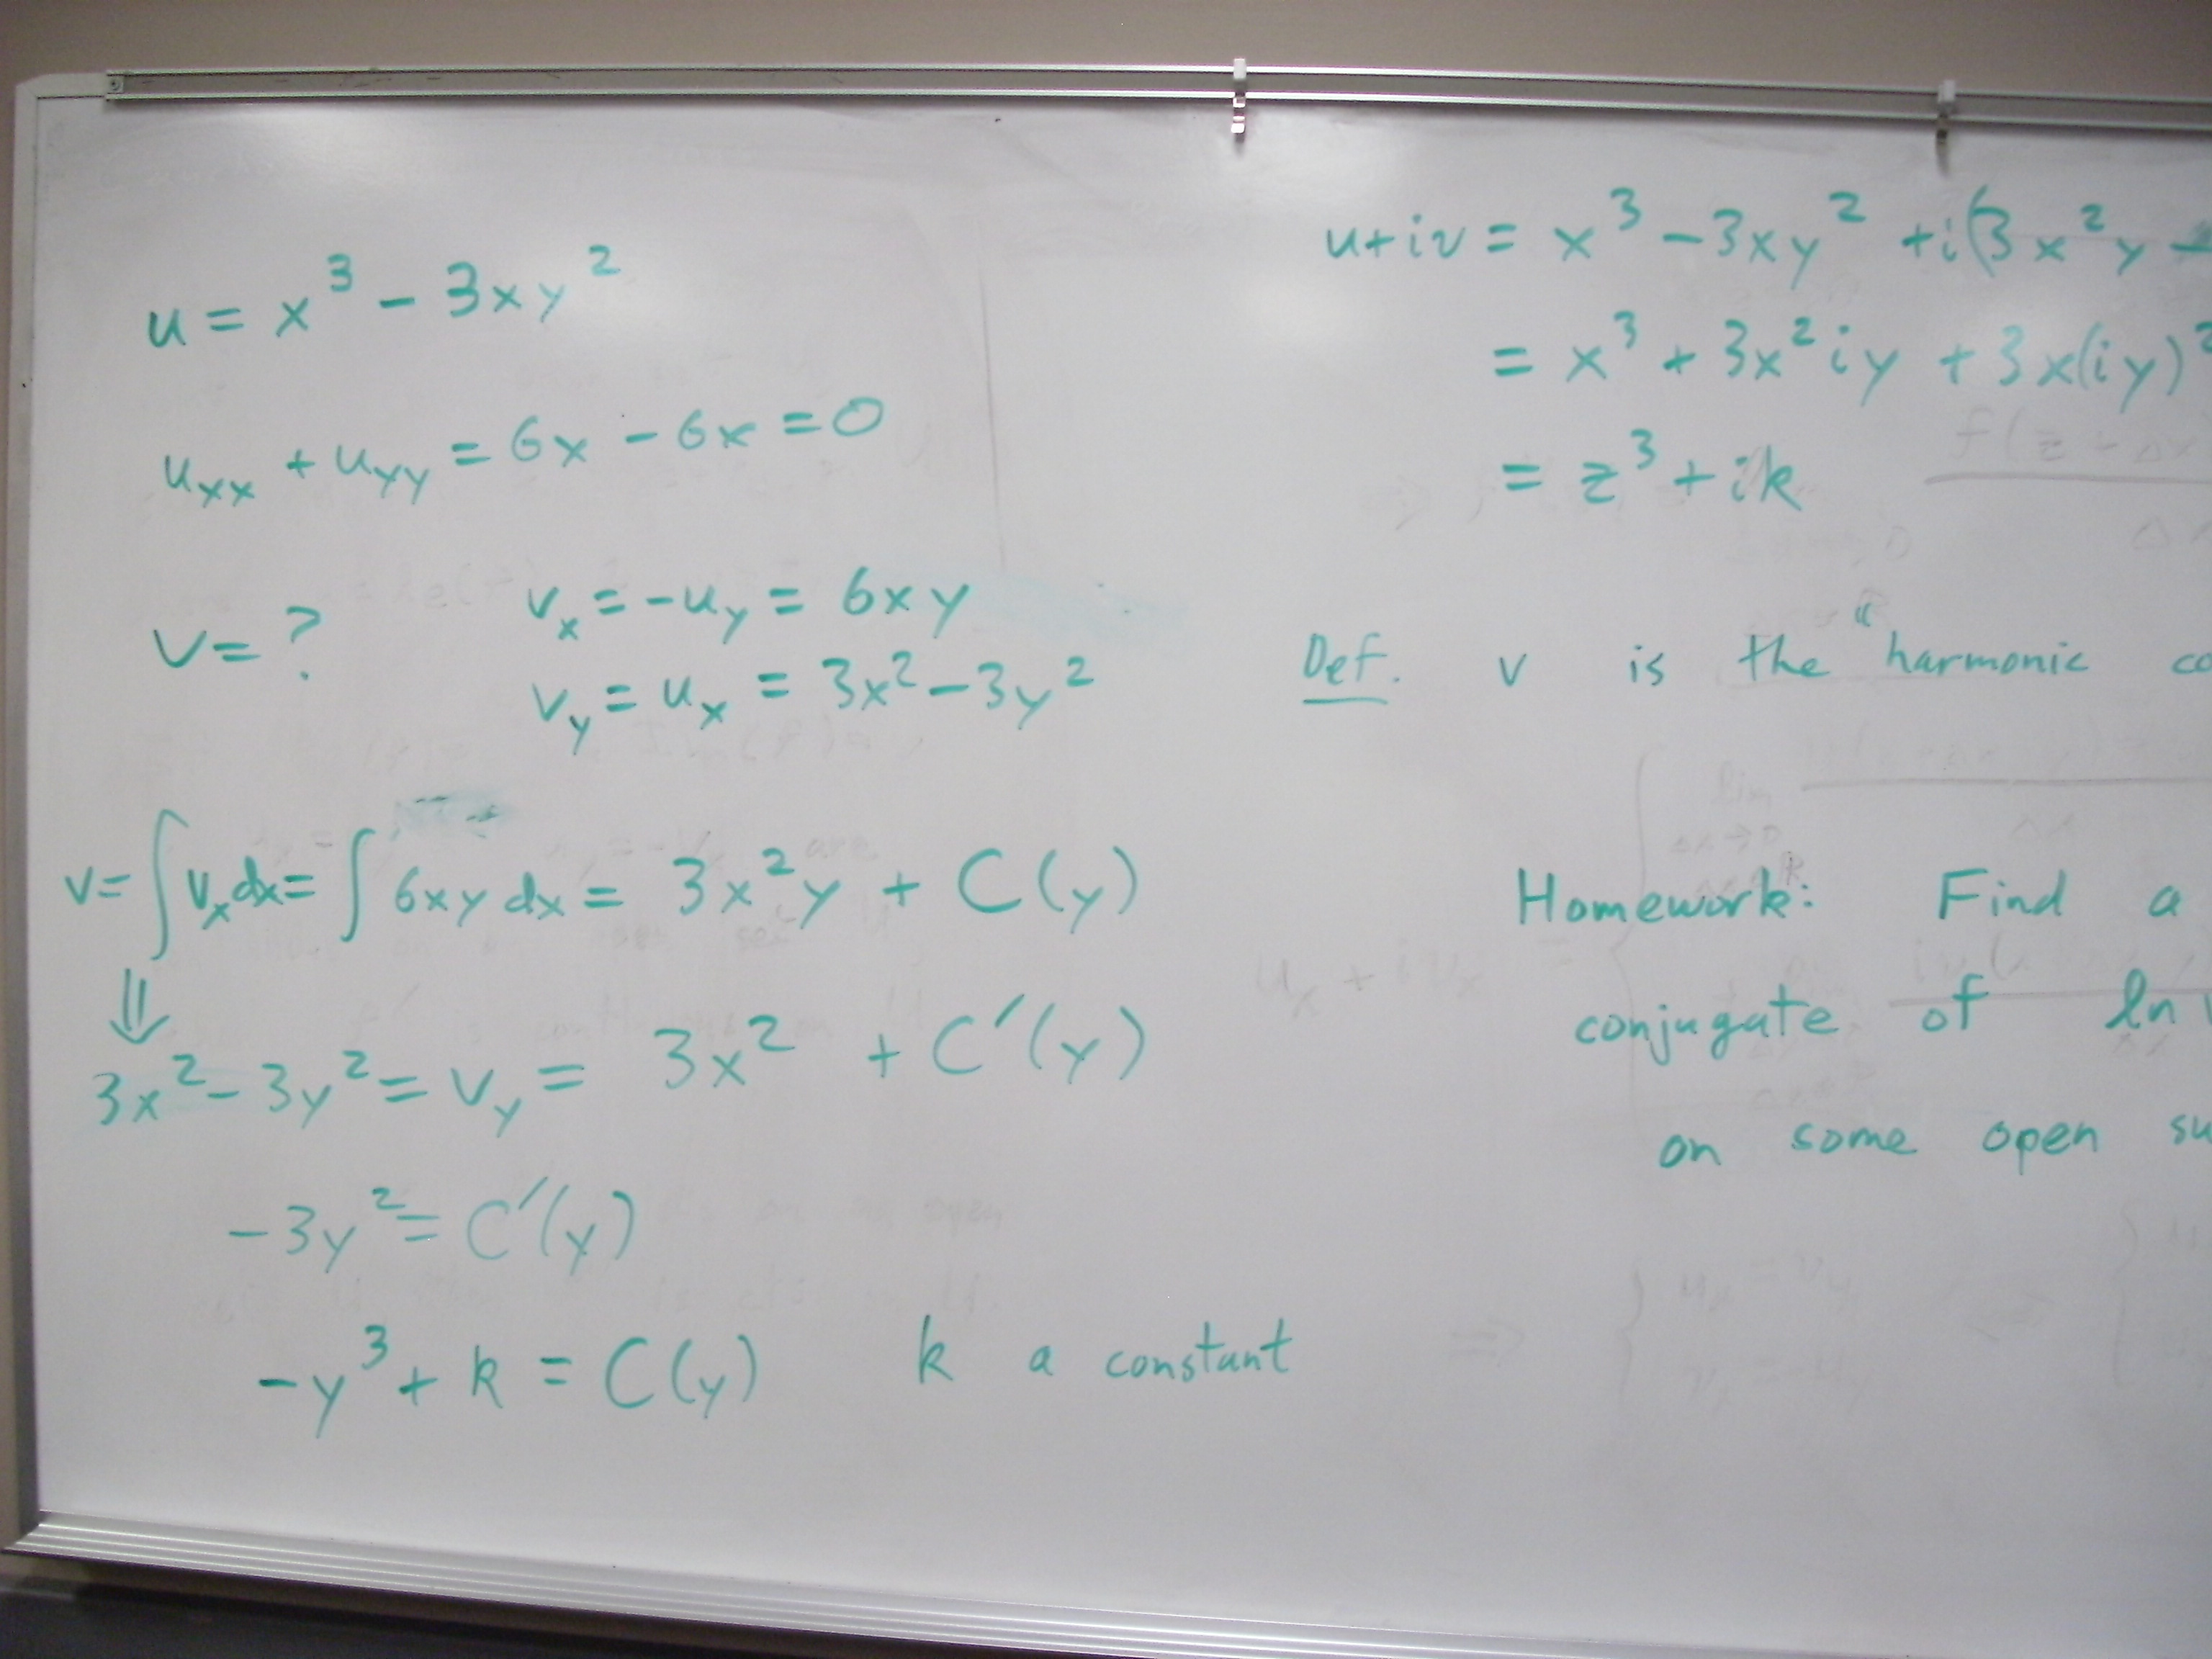 u = x³ - 3xy²
u_xx + u_yy = 6x - 6x = 0
v = ?
v_x = -u_y = 6xy
v_y = u_x = 3x² - 3y²
v = ∫ v_x dx = ∫ 6xy dx = 3x²y + C(y)
⇓
3x² - 3y² = v_y = 3x² + C′(y)
-3y² = C′(y)
-y³ + k = C(y) k a constant
u + iv = x³ - 3xy² + i(3x²y -
= x³ + 3x²iy + 3x(iy)²
= z³ + ik
Def. v is the "harmonic co
Homework: Find a
conjugate of ln
on some open su